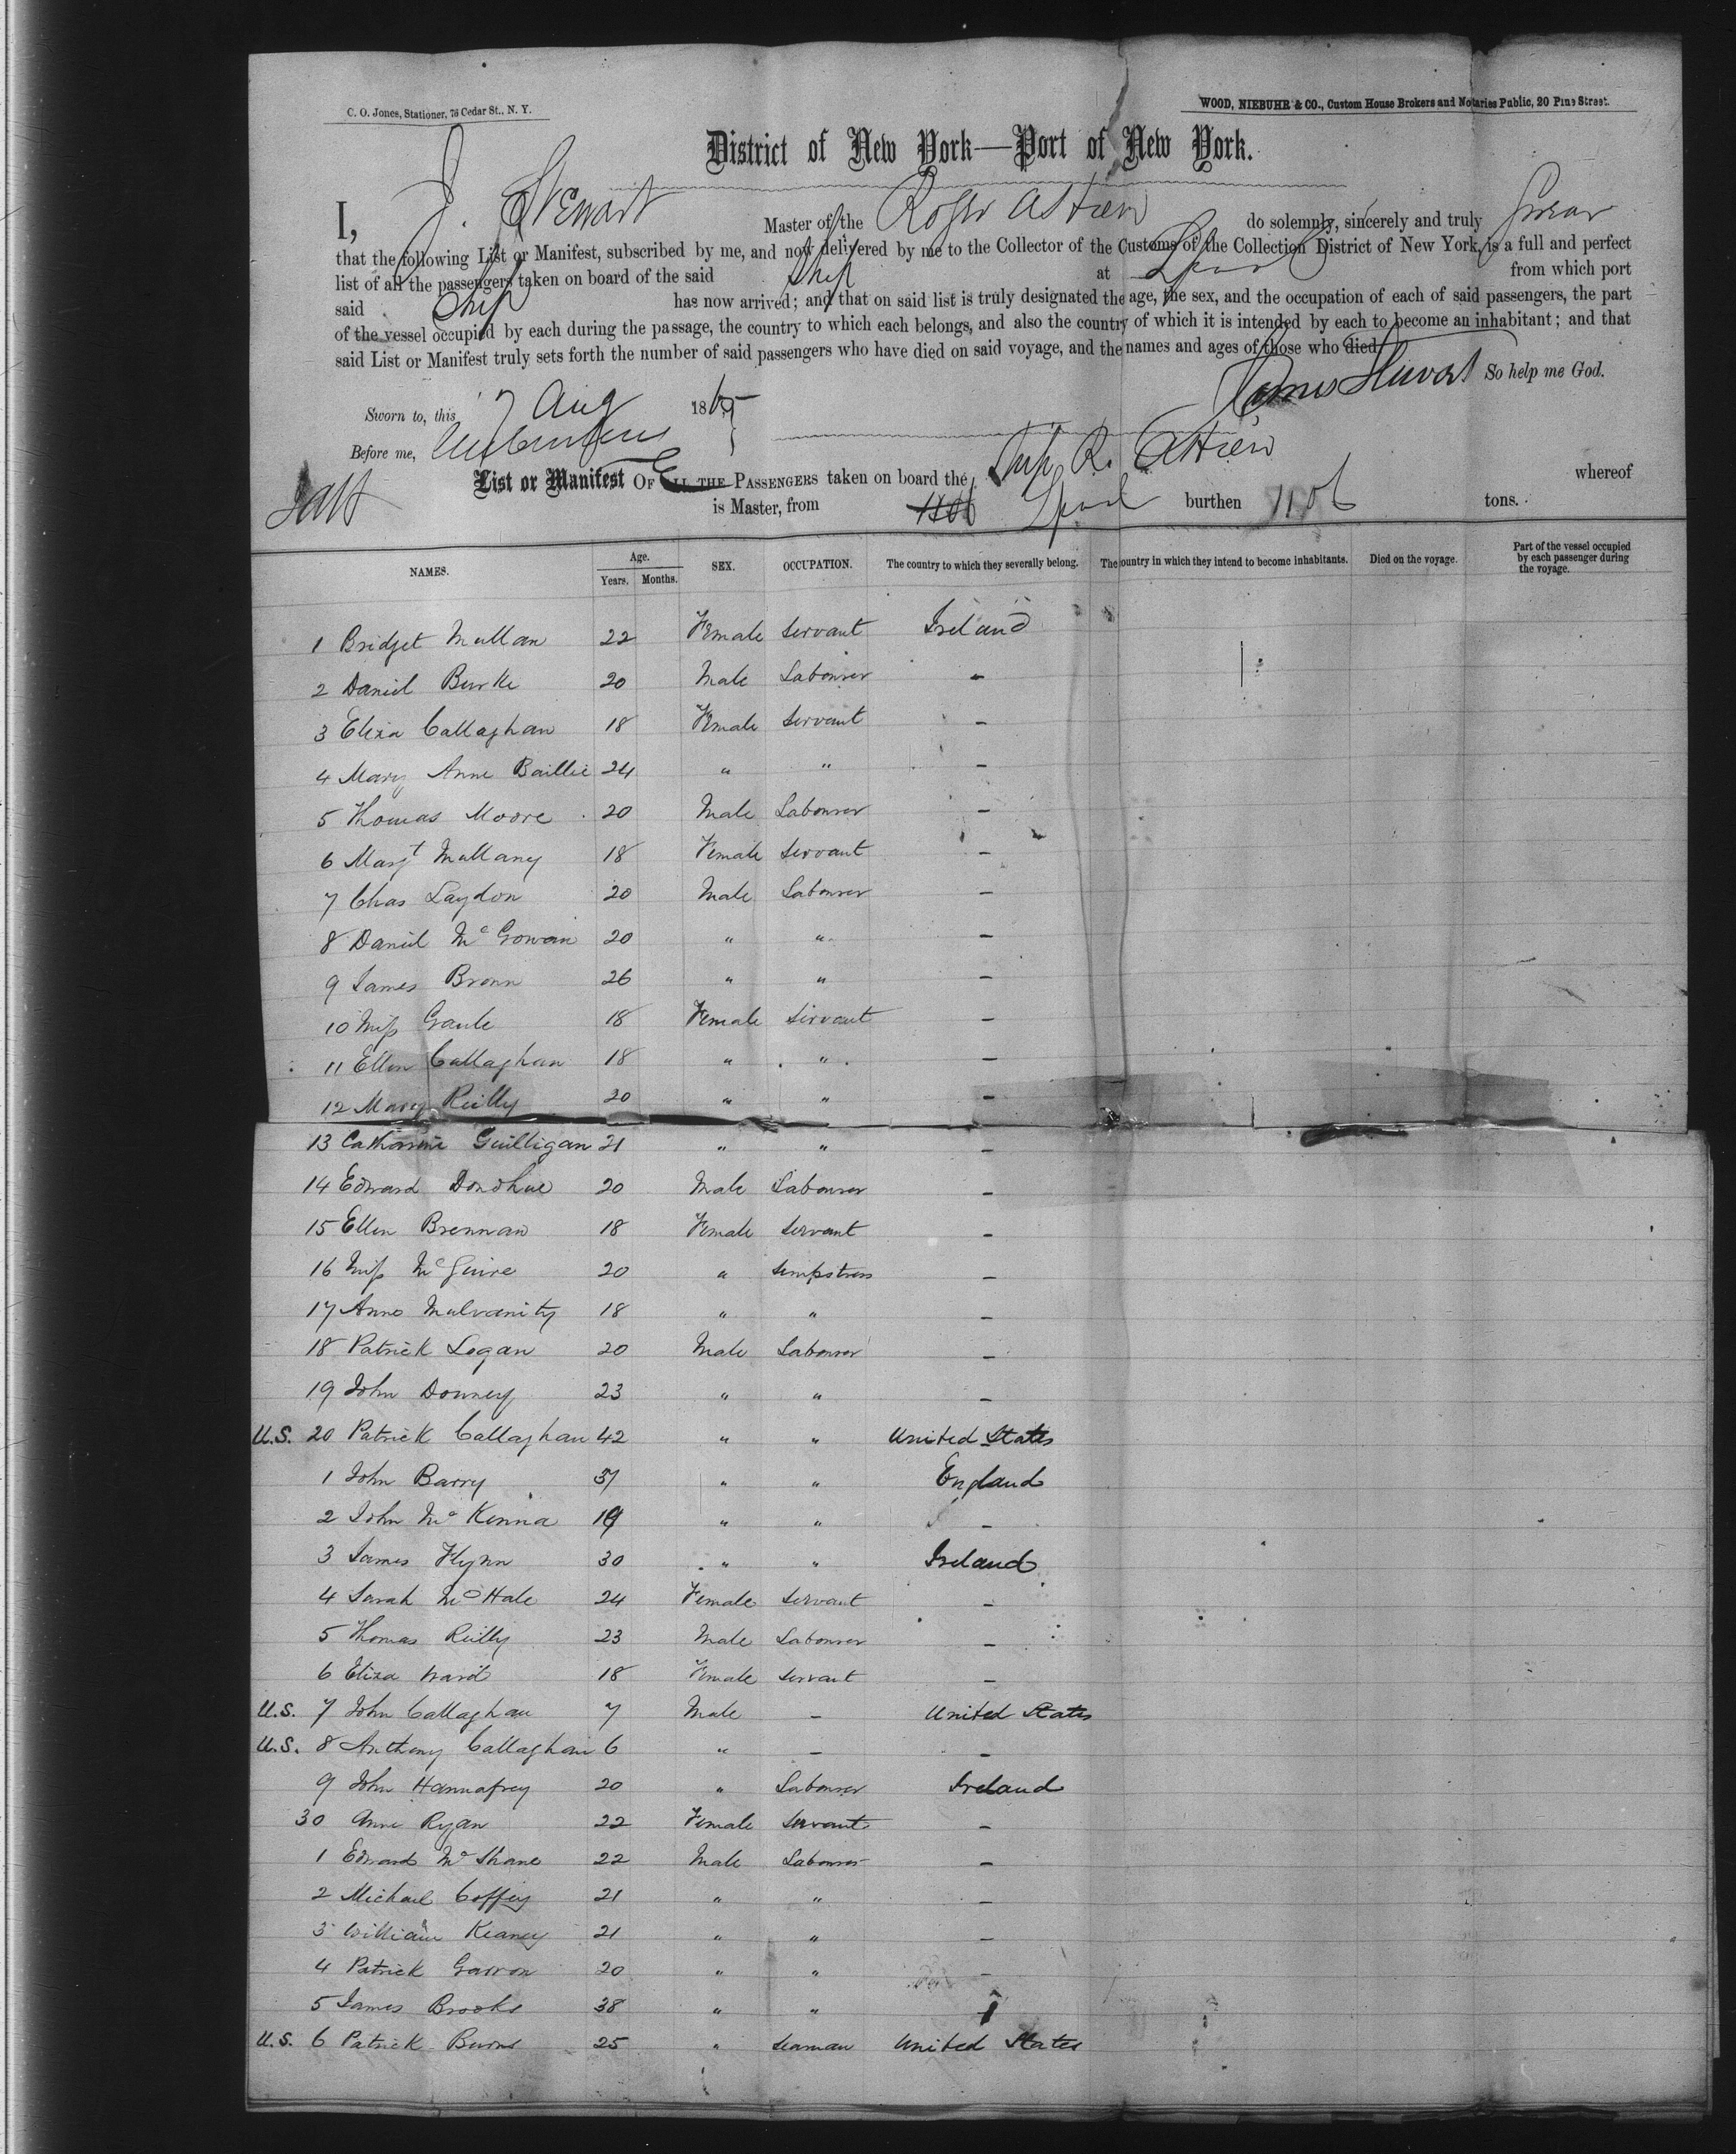 C. O. Jones, Stationer, 76 Cedar St., N. Y.
WOOD, NIEBUHR & CO., Custom House Brokers and Notaries Public, 20 Pine Street.
District of New York—Port of New York.
I, J. Stewart Master of the Roger A Hiern do solemnly, sincerely and truly swear
that the following List or Manifest, subscribed by me, and now delivered by me to the Collector of the Customs of the Collection District of New York, is a full and perfect
list of all the passengers taken on board of the said Ship at Lpool from which port
said Ship has now arrived; and that on said list is truly designated the age, the sex, and the occupation of each of said passengers, the part
of the vessel occupied by each during the passage, the country to which each belongs, and also the country of which it is intended by each to become an inhabitant; and that
said List or Manifest truly sets forth the number of said passengers who have died on said voyage, and the names and ages of those who died.
James Stewart So help me God.
Sworn to, this 7 Aug 1865
Before me,
List or Manifest OF ALL THE PASSENGERS taken on board the Ship R. A Hiern whereof
is Master, from Lpool burthen 1106 tons.
NAMES. Age. Years. Months. SEX. OCCUPATION. The country to which they severally belong. The country in which they intend to become inhabitants. Died on the voyage. Part of the vessel occupied by each passenger during the voyage.
1 Bridget Mullan 22 Female Servant Ireland
2 Daniel Burke 20 Male Labourer -
3 Eliza Callaghan 18 Female Servant -
4 Mary Anne Baillie 24 " " -
5 Thomas Moore 20 Male Labourer -
6 Margt Mullany 18 Female Servant -
7 Chas Laydon 20 Male Labourer -
8 Daniel McGowan 20 " " -
9 James Brown 26 " " -
10 Miss Gaule 18 Female Servant -
11 Ellen Callaghan 18 " " -
12 Mary Reilly 20 " " -
13 Catherine Guilligan 21 " " -
14 Edward Donohue 20 Male Labourer -
15 Ellen Brennan 18 Female Servant -
16 Miss McGuire 20 " Sempstress -
17 Anne Mulvanity 18 " " -
18 Patrick Logan 20 Male Labourer -
19 John Downey 23 " " -
U.S. 20 Patrick Callaghan 42 " " United States
1 John Barry 37 " " England
2 John McKenna 19 " " -
3 James Flynn 30 " " Ireland
4 Sarah McHale 24 Female Servant -
5 Thomas Reilly 23 Male Labourer -
6 Eliza Ward 18 Female Servant -
U.S. 7 John Callaghan 7 Male - United States
U.S. 8 Anthony Callaghan 6 " - -
9 John Hannafrey 20 " Labourer Ireland
30 Anne Ryan 22 Female Servant -
1 Edward McShane 22 Male Labourer -
2 Michael Coffey 21 " " -
3 William Keaney 21 " " -
4 Patrick Garron 20 " " -
5 James Brooks 38 " "
U.S. 6 Patrick Burns 25 " Seaman United States